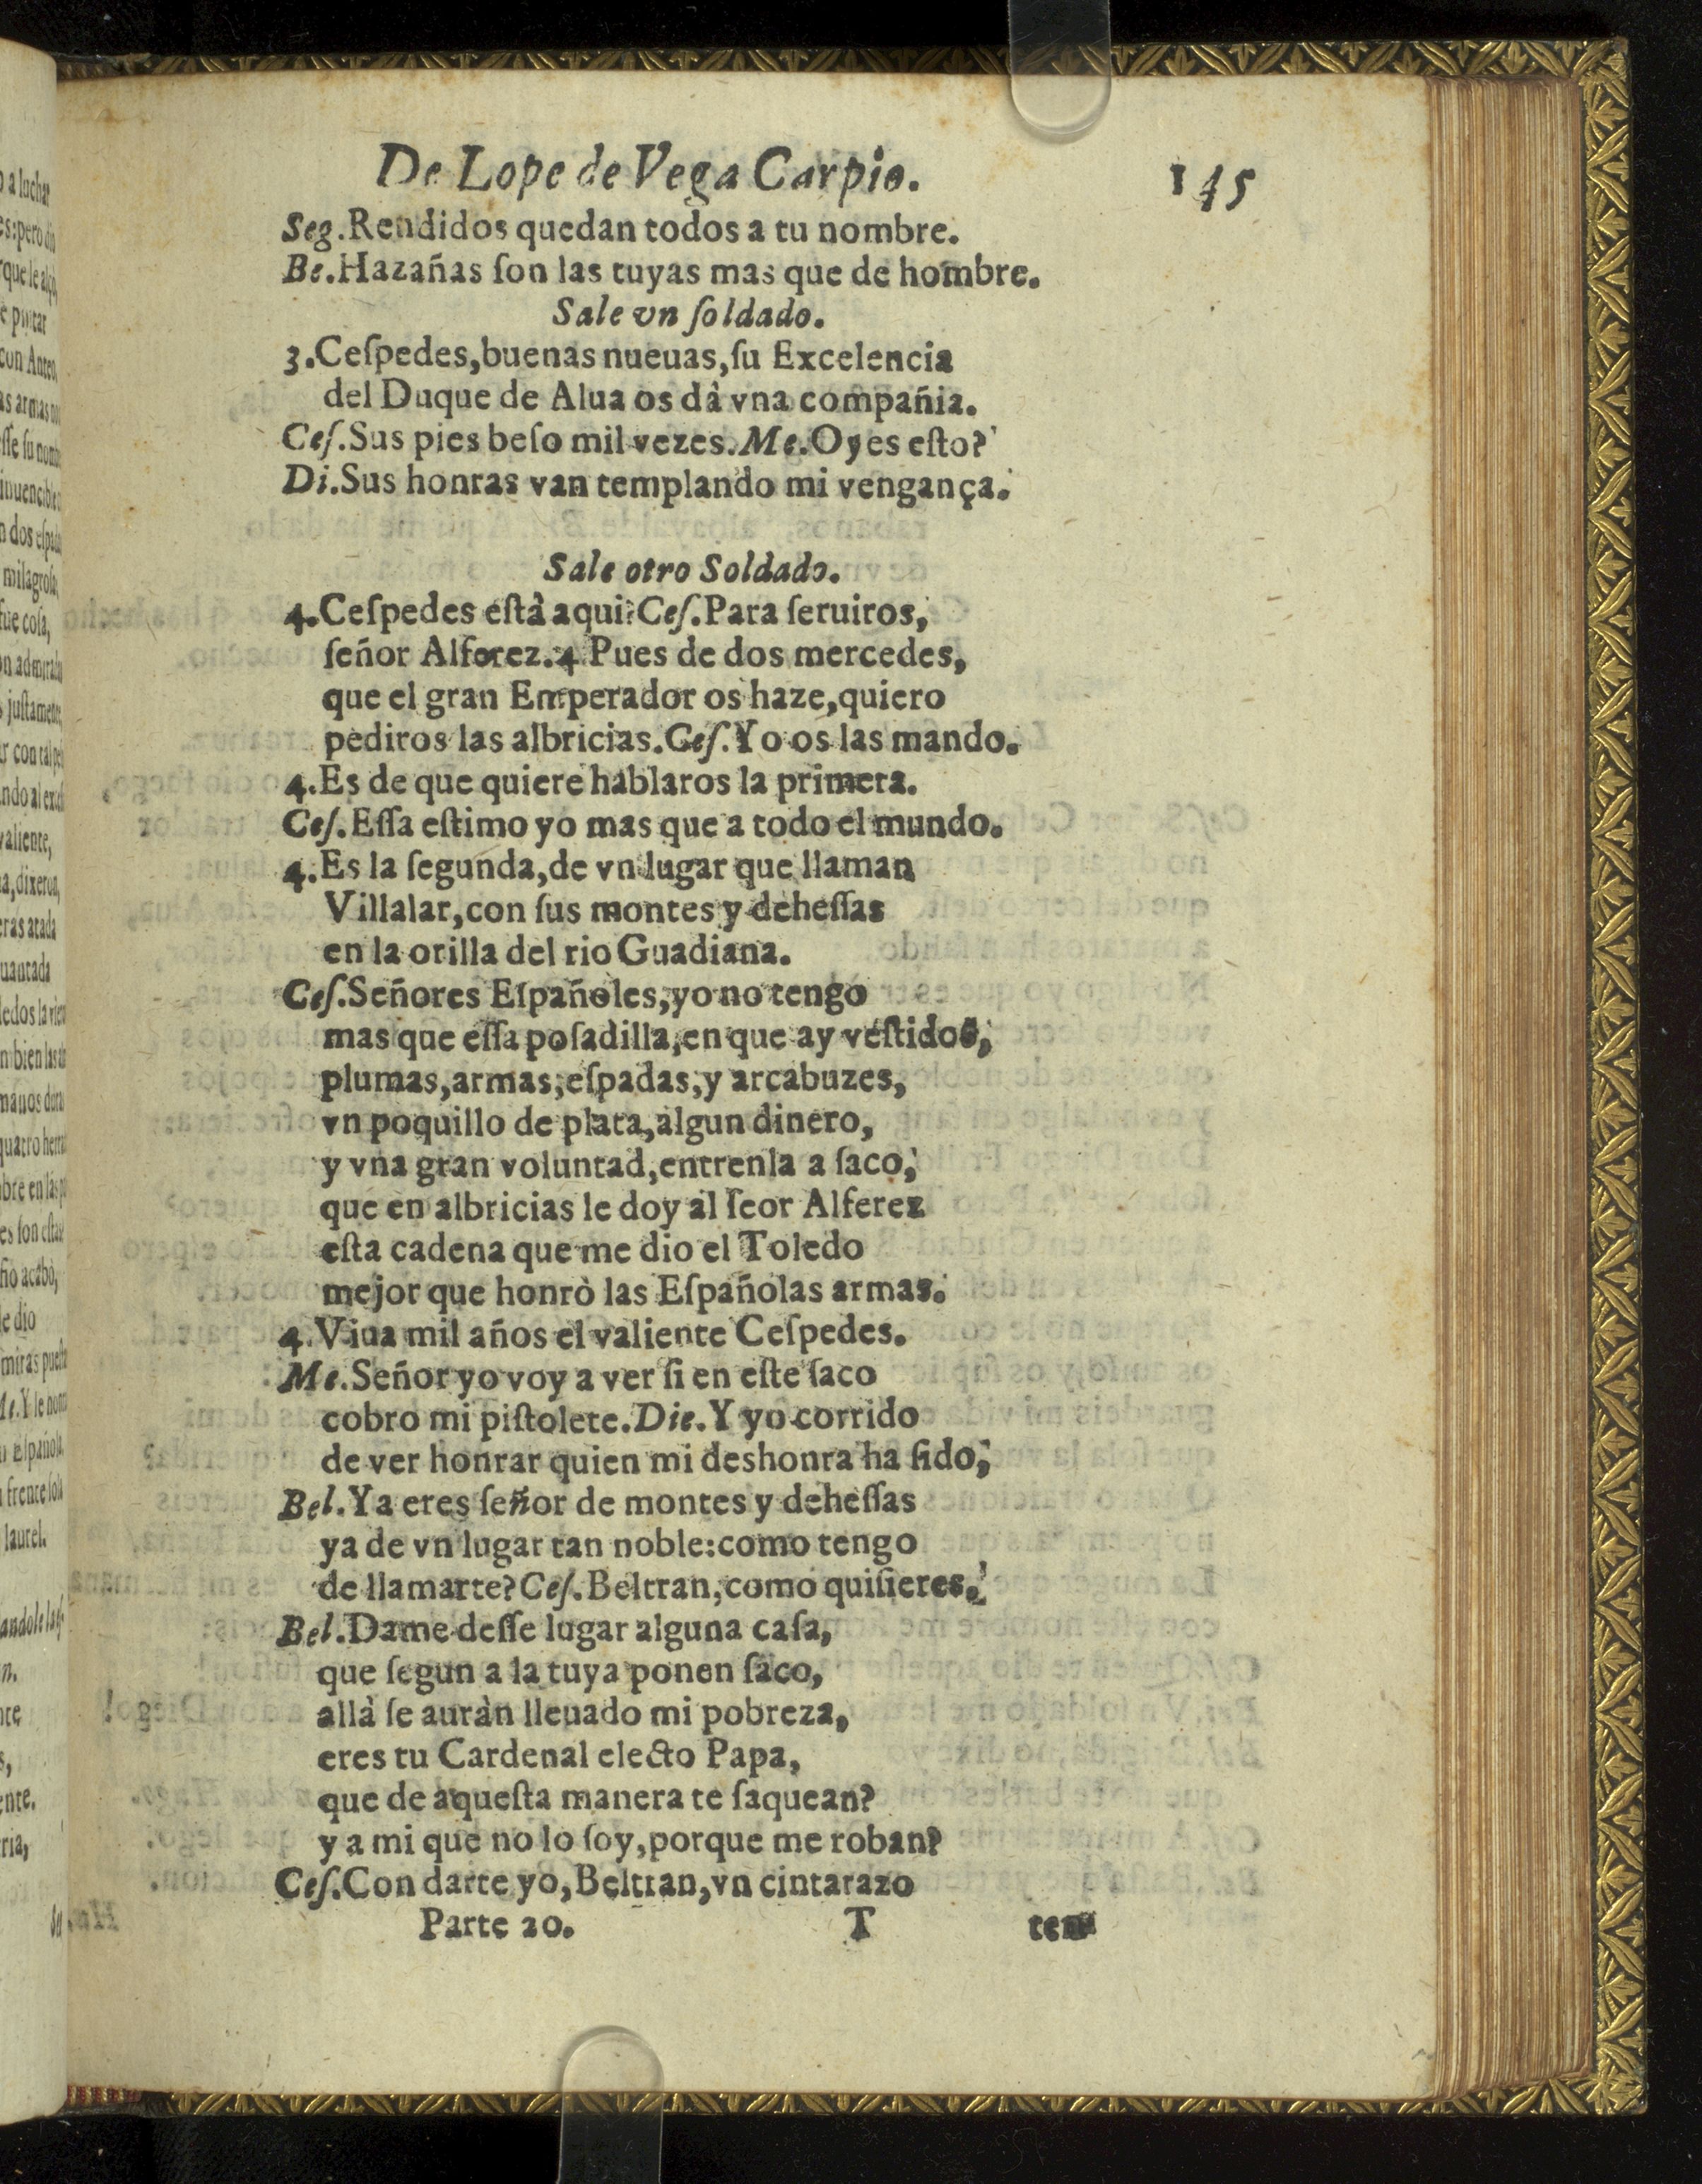 De Lope de Vega Carpio. 145
Seg.Rendidos quedan todos a tu nombre.
Be.Hazañas ſon las tuyas mas que de hombre.
Sale vn ſoldado.
3.Ceſpedes,buenas nueuas,ſu Excelencia
del Duque de Alua os dà vna compañia.
Ceſ.Sus pies beſo mil vezes.Me.Oyes eſto?
Di.Sus honras van templando mi vengança.
Sale otro Soldado.
4.Ceſpedes eſtà aqui?Ceſ.Para ſeruiros,
ſeñor Alferez.4.Pues de dos mercedes,
que el gran Emperador os haze,quiero
pediros las albricias.Ceſ.Yo os las mando.
4.Es de que quiere hablaros la primera.
Ceſ.Eſſa eſtimo yo mas que a todo el mundo.
4.Es la ſegunda,de vn lugar que llaman
Villalar,con ſus montes y deheſſas
en la orilla del rio Guadiana.
Ceſ.Señores Eſpañoles,yo no tengo
mas que eſſa poſadilla,en que ay veſtidos,
plumas,armas,eſpadas,y arcabuzes,
vn poquillo de plata,algun dinero,
y vna gran voluntad,entrenla a ſaco,
que en albricias le doy al ſeor Alferez
eſta cadena que me dio el Toledo
mejor que honrò las Eſpañolas armas.
4.Viua mil años el valiente Ceſpedes.
Me.Señor yo voy a ver ſi en eſte ſaco
cobro mi piſtolete.Die.Y yo corrido
de ver honrar quien mi deshonra ha ſido,
Bel.Ya eres ſeñor de montes y deheſſas
ya de vn lugar tan noble:como tengo
de llamarte?Ceſ.Beltran,como quiſieres.
Bel.Dame deſſe lugar alguna caſa,
que ſegun a la tuya ponen ſaco,
allà ſe auràn lleuado mi pobreza,
eres tu Cardenal electo Papa,
que de aqueſta manera te ſaquean?
y a mi que no lo ſoy,porque me roban?
Ceſ.Con darte yo,Beltran,vn cintarazo
Parte 20. T tem